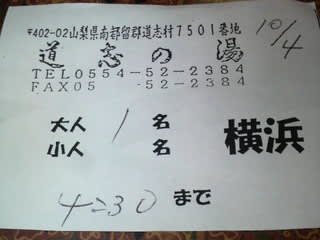 〒402-02山梨県南都留郡道志村7501番地
10/4
道志の湯
TEL0554-52-2384
FAX05 -52-2384
大人 1 名
小人 名
横浜
4:30 まで